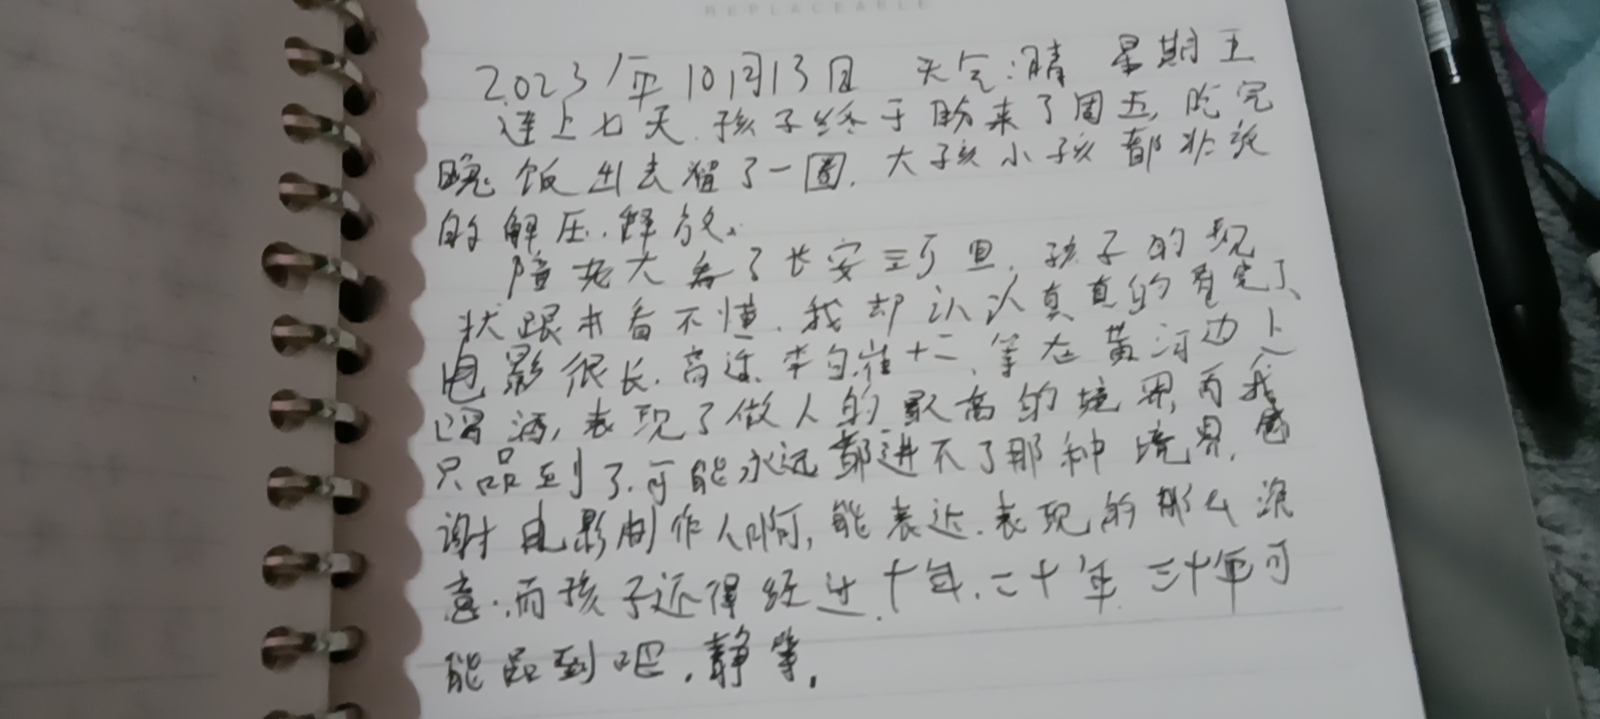 REPLACEABLE
2023年10月13日 天气:晴 星期五
连上七天.孩子终于盼来了周五,吃完
晚饭出去溜了一圈.大孩小孩都非常
的解压.释放.
陪老大看了长安三万里.孩子的现
状跟本看不懂.我却认认真真的看完了、
电影很长.高适、李白、崔十二、等在黄河边上
喝酒,表现了做人的最高的境界,而我
只品到了.可能永远都进不了那种境界.感
谢电影制作人啊,能表达.表现的那么
意.而孩子还得经过.十年.二十年.三十年可
能品到吧.静等.